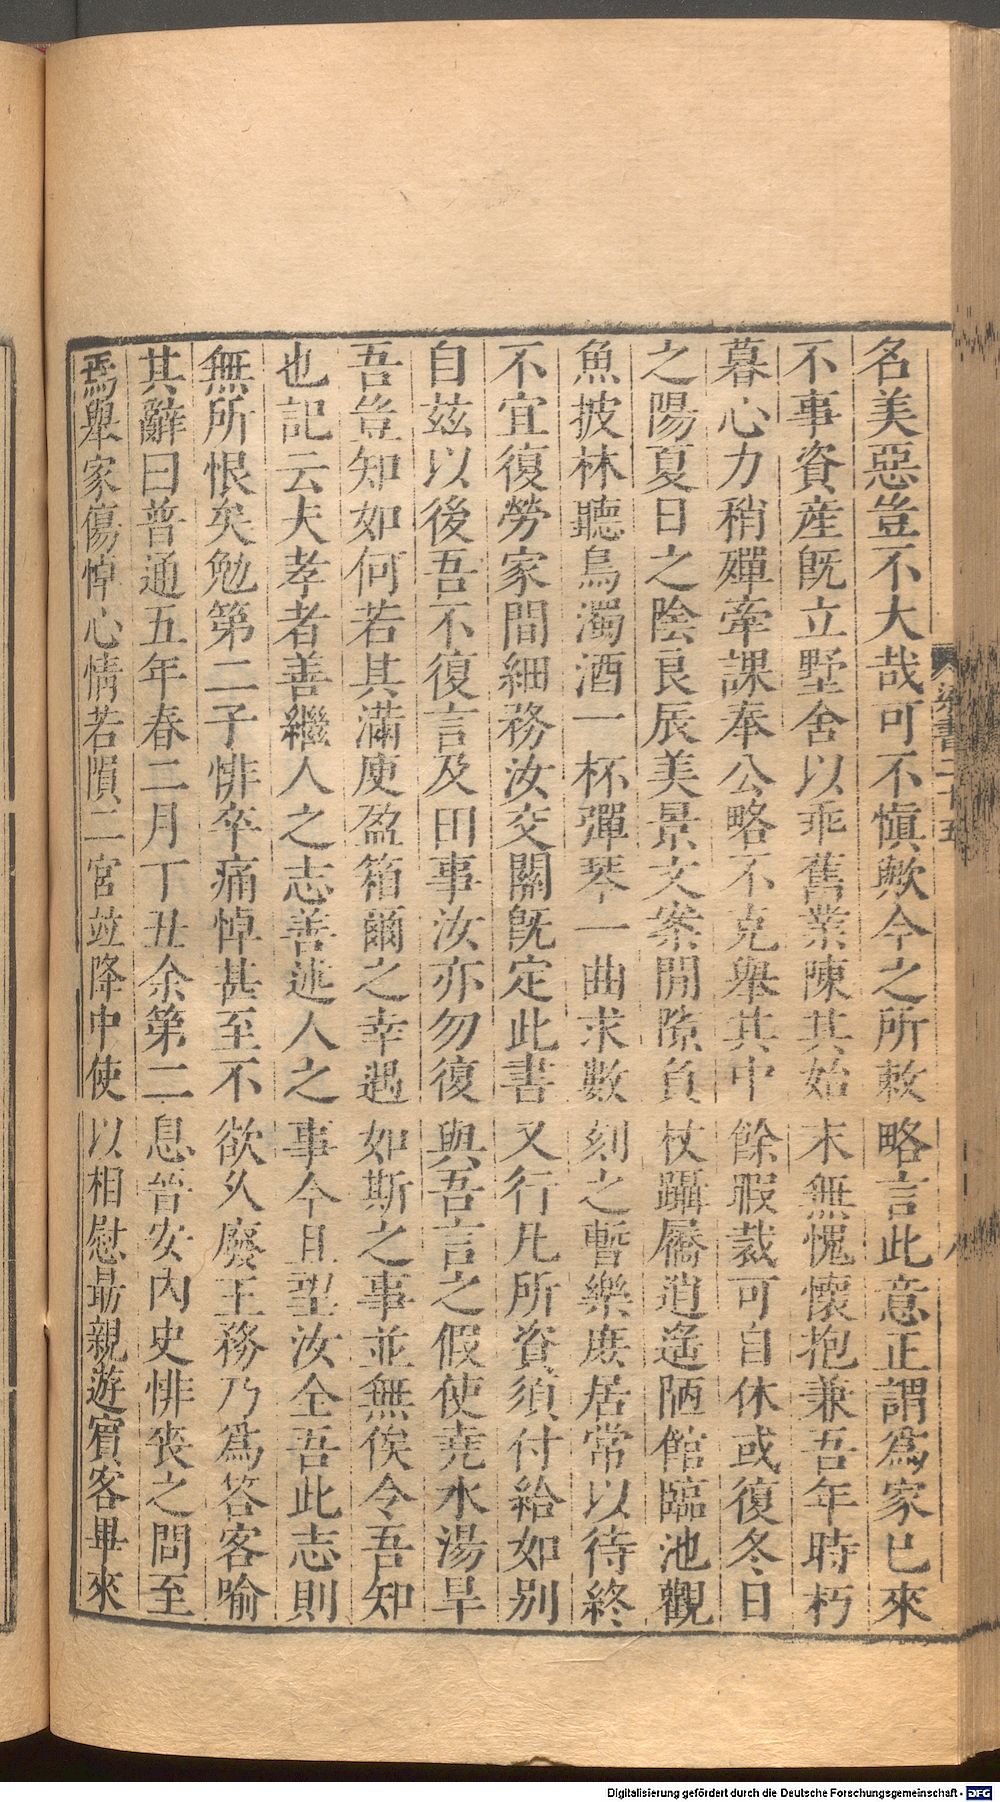 名美惡豈不大哉可不愼歟今之所敕略言此意正謂爲家已來
不事資産旣立墅舍以乖舊業陳其始末無愧懷抱兼吾年時朽
暮心力稍殫牽課奉公略不克舉其中餘暇裁可自休或復冬日
之陽夏日之陰良辰美景文案閒隙負杖躡屩逍遙陋館臨池觀
魚披林聽鳥濁酒一杯彈琴一曲求數刻之暫樂庶居常以待終
不宜復勞家間細務汝交關旣定此書又行凡所資須付給如别
自茲以後吾不復言及田事汝亦勿復與吾言之假使堯水湯旱
吾豈知如何若其滿庾盈箱爾之幸遇如斯之事並無俟令吾知
也記云夫孝者善繼人之志善述人之事今且望汝全吾此志則
無所恨矣勉第二子悱卒痛悼甚至不欲久廢王務乃爲答客喻
其辭曰普通五年春二月丁丑余第二息晉安內史悱喪之問至
焉舉家傷悼心情若隕二宮竝降中使以相慰勗親遊賓客畢來
梁書二十五
八
Digitalisierung gefördert durch die Deutsche Forschungsgemeinschaft - DFG